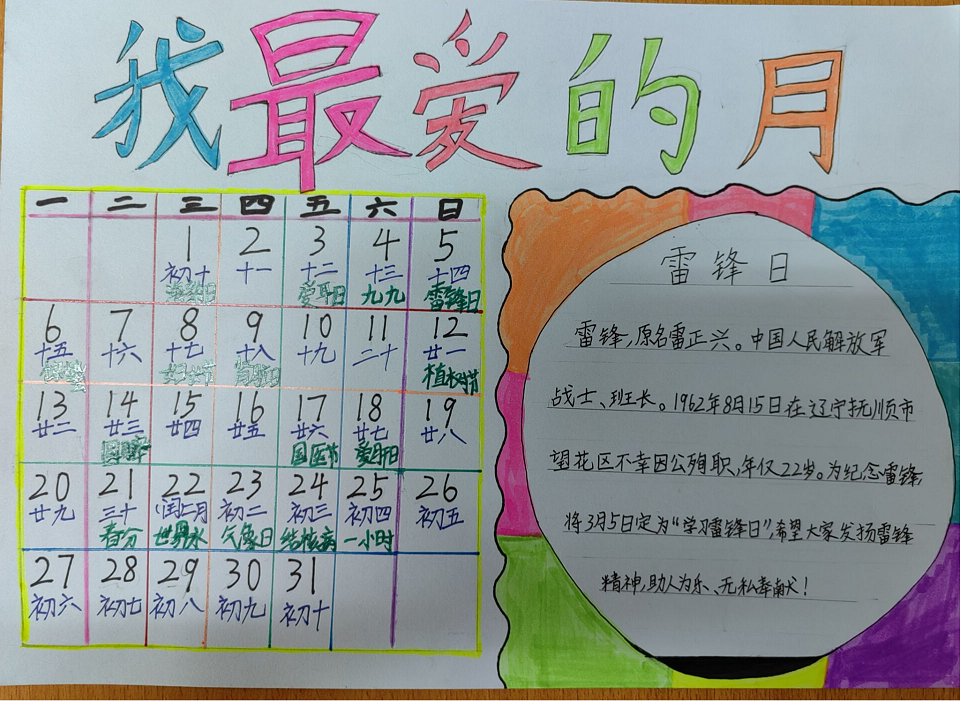 我最爱的月
一 二 三 四 五 六 日
1 2 3 4 5
初十 十一 十二 十三 十四
爱耳日 九九 雷锋日
6 7 8 9 10 11 12
十五 十六 十七 十八 十九 二十 廿一
植树节
13 14 15 16 17 18 19
廿二 廿三 廿四 廿五 廿六 廿七 廿八
国医节 爱肝日
20 21 22 23 24 25 26
廿九 三十 闰二月 初二 初三 初四 初五
春分 世界水 气象日 结核病 一小时
27 28 29 30 31
初六 初七 初八 初九 初十
雷锋日
雷锋,原名雷正兴。中国人民解放军
战士、班长。1962年8月15日在辽宁抚顺市
望花区不幸因公殉职,年仅22岁。为纪念雷锋,
将3月5日定为“学习雷锋日”,希望大家发扬雷锋
精神,助人为乐、无私奉献!